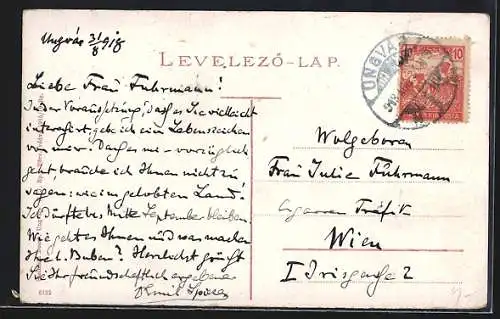 Ungvár 3/8 918
LEVELEZŐ-LAP.
Liebe Frau Fuhrmann!
In der Voraussetzung, daß es Sie vielleicht
interessiert, gebe ich ein Lebenszeichen
von mir! Daß es mir vorzüglich
geht, brauche ich Ihnen nicht zu
sagen: wie im gelobten Land!
Ich dürfte bis Mitte September bleiben.
Wie geht es Ihnen und was machen
Ihre l. Buben? Herzlichst grüßt
Sie Ihr freundschaftlich ergebener
Emil
UNGVÁR
10
Wolgeboren
Frau Julie Fuhrmann
Cigarren Trafik
Wien
I Irisgasse 2
6185